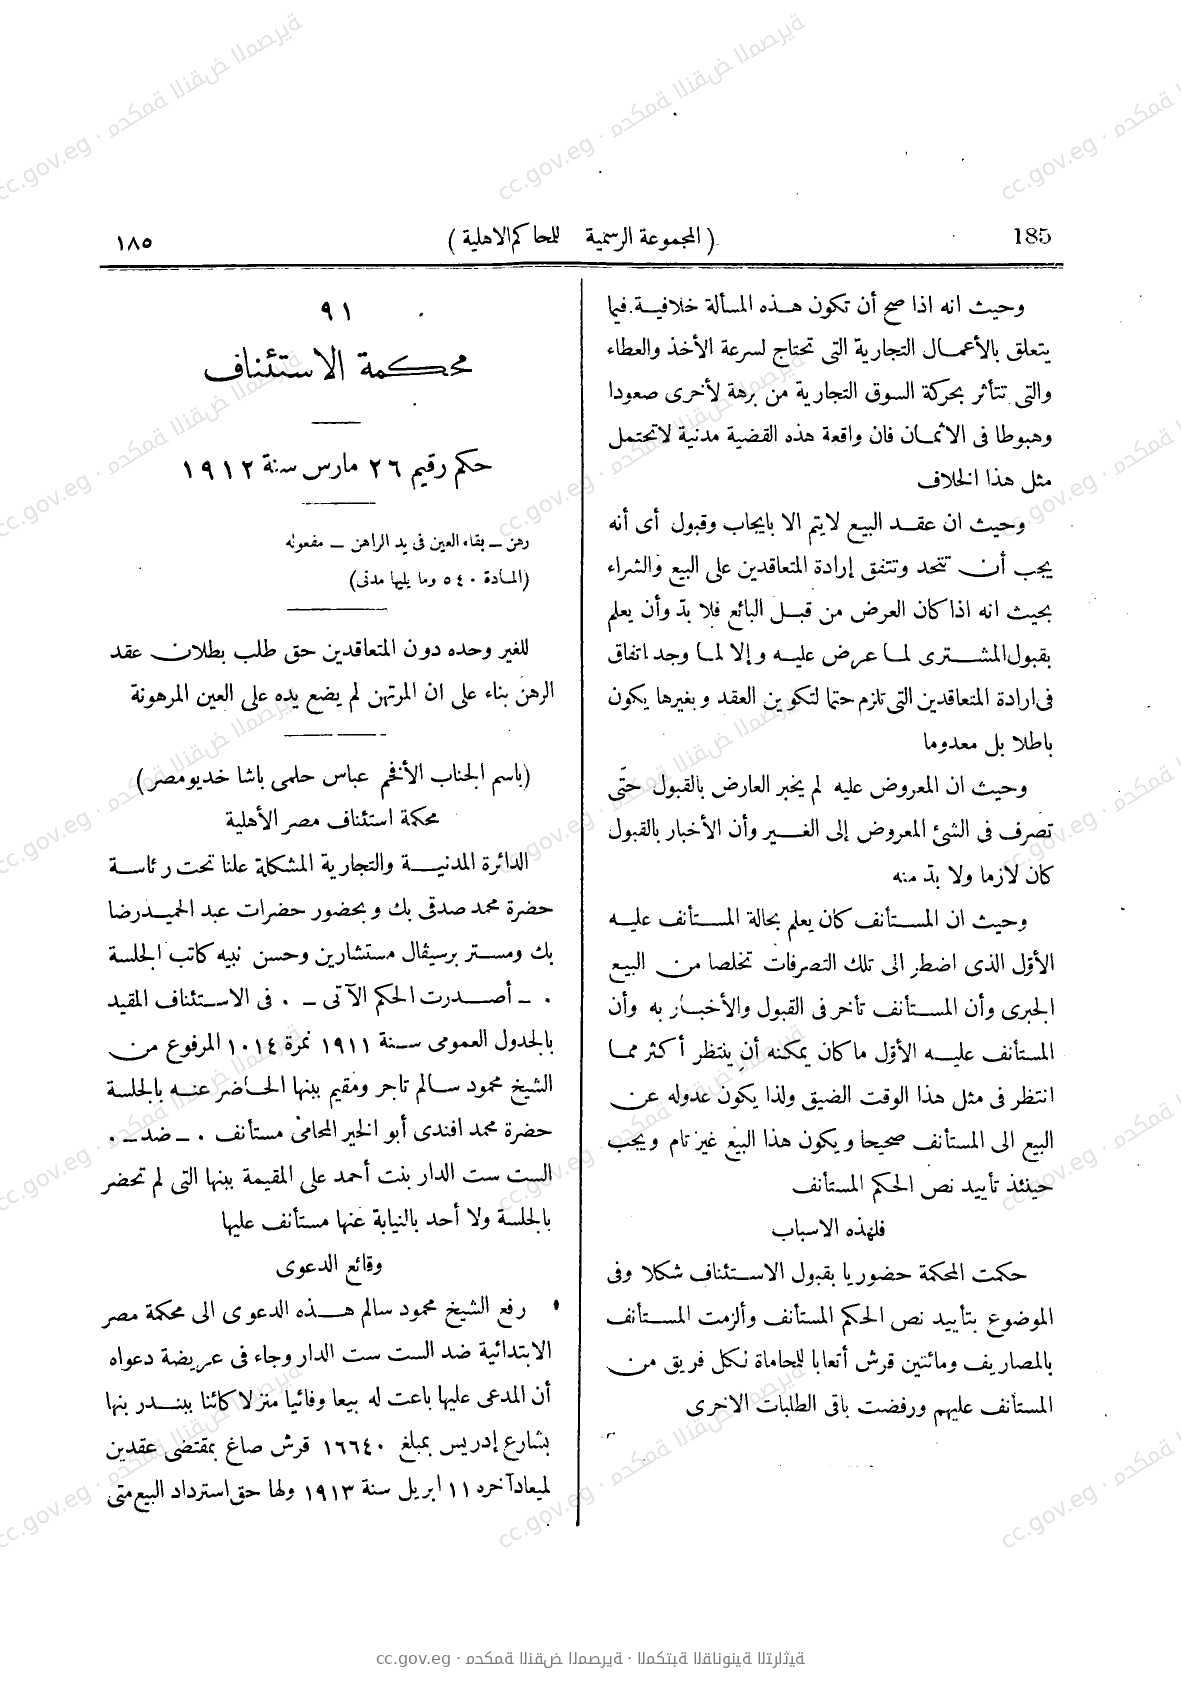 185
(المجموعة الرسمية للمحاكم الاهلية)
١٨٥
وحيث انه اذا صح أن تكون هذه المسألة خلافية فيما
يتعلق بالأعمال التجارية التى تحتاج لسرعة الأخذ والعطاء
والتى تتأثر بحركة السوق التجارية من برهة لأخرى صعودا
وهبوطا فى الاثمان فان واقعة هذه القضية مدنية لاتحتمل
مثل هذا الخلاف
وحيث ان عقد البيع لايتم الا بايجاب وقبول أى أنه
يجب أن تتحد وتتفق إرادة المتعاقدين على البيع والشراء
بحيث انه اذا كان العرض من قبل البائع فلا بدّ وأن يعلم
بقبول المشترى لما عرض عليه وإلا لما وجد اتفاق
فى ارادة المتعاقدين التى تلزم حتما لتكوين العقد وبغيرها يكون
باطلا بل معدوما
وحيث ان المعروض عليه لم يخبر العارض بالقبول حتّى
تصرف فى الشئ المعروض إلى الغير وأن الأخبار بالقبول
كان لازما ولا بدّ منه
وحيث ان المستأنف كان يعلم بحالة المستأنف عليه
الأوّل الذى اضطر الى تلك التصرفات تخلصا من البيع
الجبرى وأن المستأنف تأخر فى القبول والأخبار به وأن
المستأنف عليه الأوّل ما كان يمكنه أن ينتظر أكثر مما
انتظر فى مثل هذا الوقت الضيق ولذا يكون عدوله عن
البيع الى المستأنف صحيحا ويكون هذا البيع غير تام ويجب
حينئذ تأييد نص الحكم المستأنف
فلهذه الاسباب
حكمت المحكمة حضوريا بقبول الاستئناف شكلا وفى
الموضوع بتأييد نص الحكم المستأنف وألزمت المستأنف
بالمصاريف ومائتين قرش أتعابا للمحاماة لكل فريق من
المستأنف عليهم ورفضت باقى الطلبات الاخرى
٩١
محكمة الاستئناف
حكم رقيم ٢٦ مارس سنة ١٩١٢
رهن – بقاء العين فى يد الراهن – مفعوله
(المادة ٥٤٠ وما يليها مدنى)
للغير وحده دون المتعاقدين حق طلب بطلان عقد
الرهن بناء على ان المرتهن لم يضع يده على العين المرهونة
(باسم الجناب الأفخم عباس حلمى باشا خديو مصر)
محكمة استئناف مصر الأهلية
الدائرة المدنية والتجارية المشكلة علنا تحت رئاسة
حضرة محمد صدقى بك وبحضور حضرات عبد الحميد رضا
بك ومستر برسيڤال مستشارين وحسن نبيه كاتب الجلسة
. – أصدرت الحكم الآتى – . فى الاستئناف المقيد
بالجدول العمومى سنة ١٩١١ نمرة ١٠١٤ المرفوع من
الشيخ محمود سالم تاجر ومقيم ببنها الحاضر عنه بالجلسة
حضرة محمد افندى أبو الخير المحامى مستأنف . – ضد – .
الست ست الدار بنت أحمد على المقيمة ببنها التى لم تحضر
بالجلسة ولا أحد بالنيابة عنها مستأنف عليها
وقائع الدعوى
رفع الشيخ محمود سالم هذه الدعوى الى محكمة مصر
الابتدائية ضد الست ست الدار وجاء فى عريضة دعواه
أن المدعى عليها باعت له بيعا وفائيا منزلا كائنا ببندر بنها
بشارع إدريس بمبلغ ١٦٦٤٠ قرش صاغ بمقتضى عقدين
لميعاد آخره ١١ ابريل سنة ١٩١٣ ولها حق استرداد البيع متى
cc.gov.eg · محكمة النقض المصرية · المكتبة القانونية التراثية